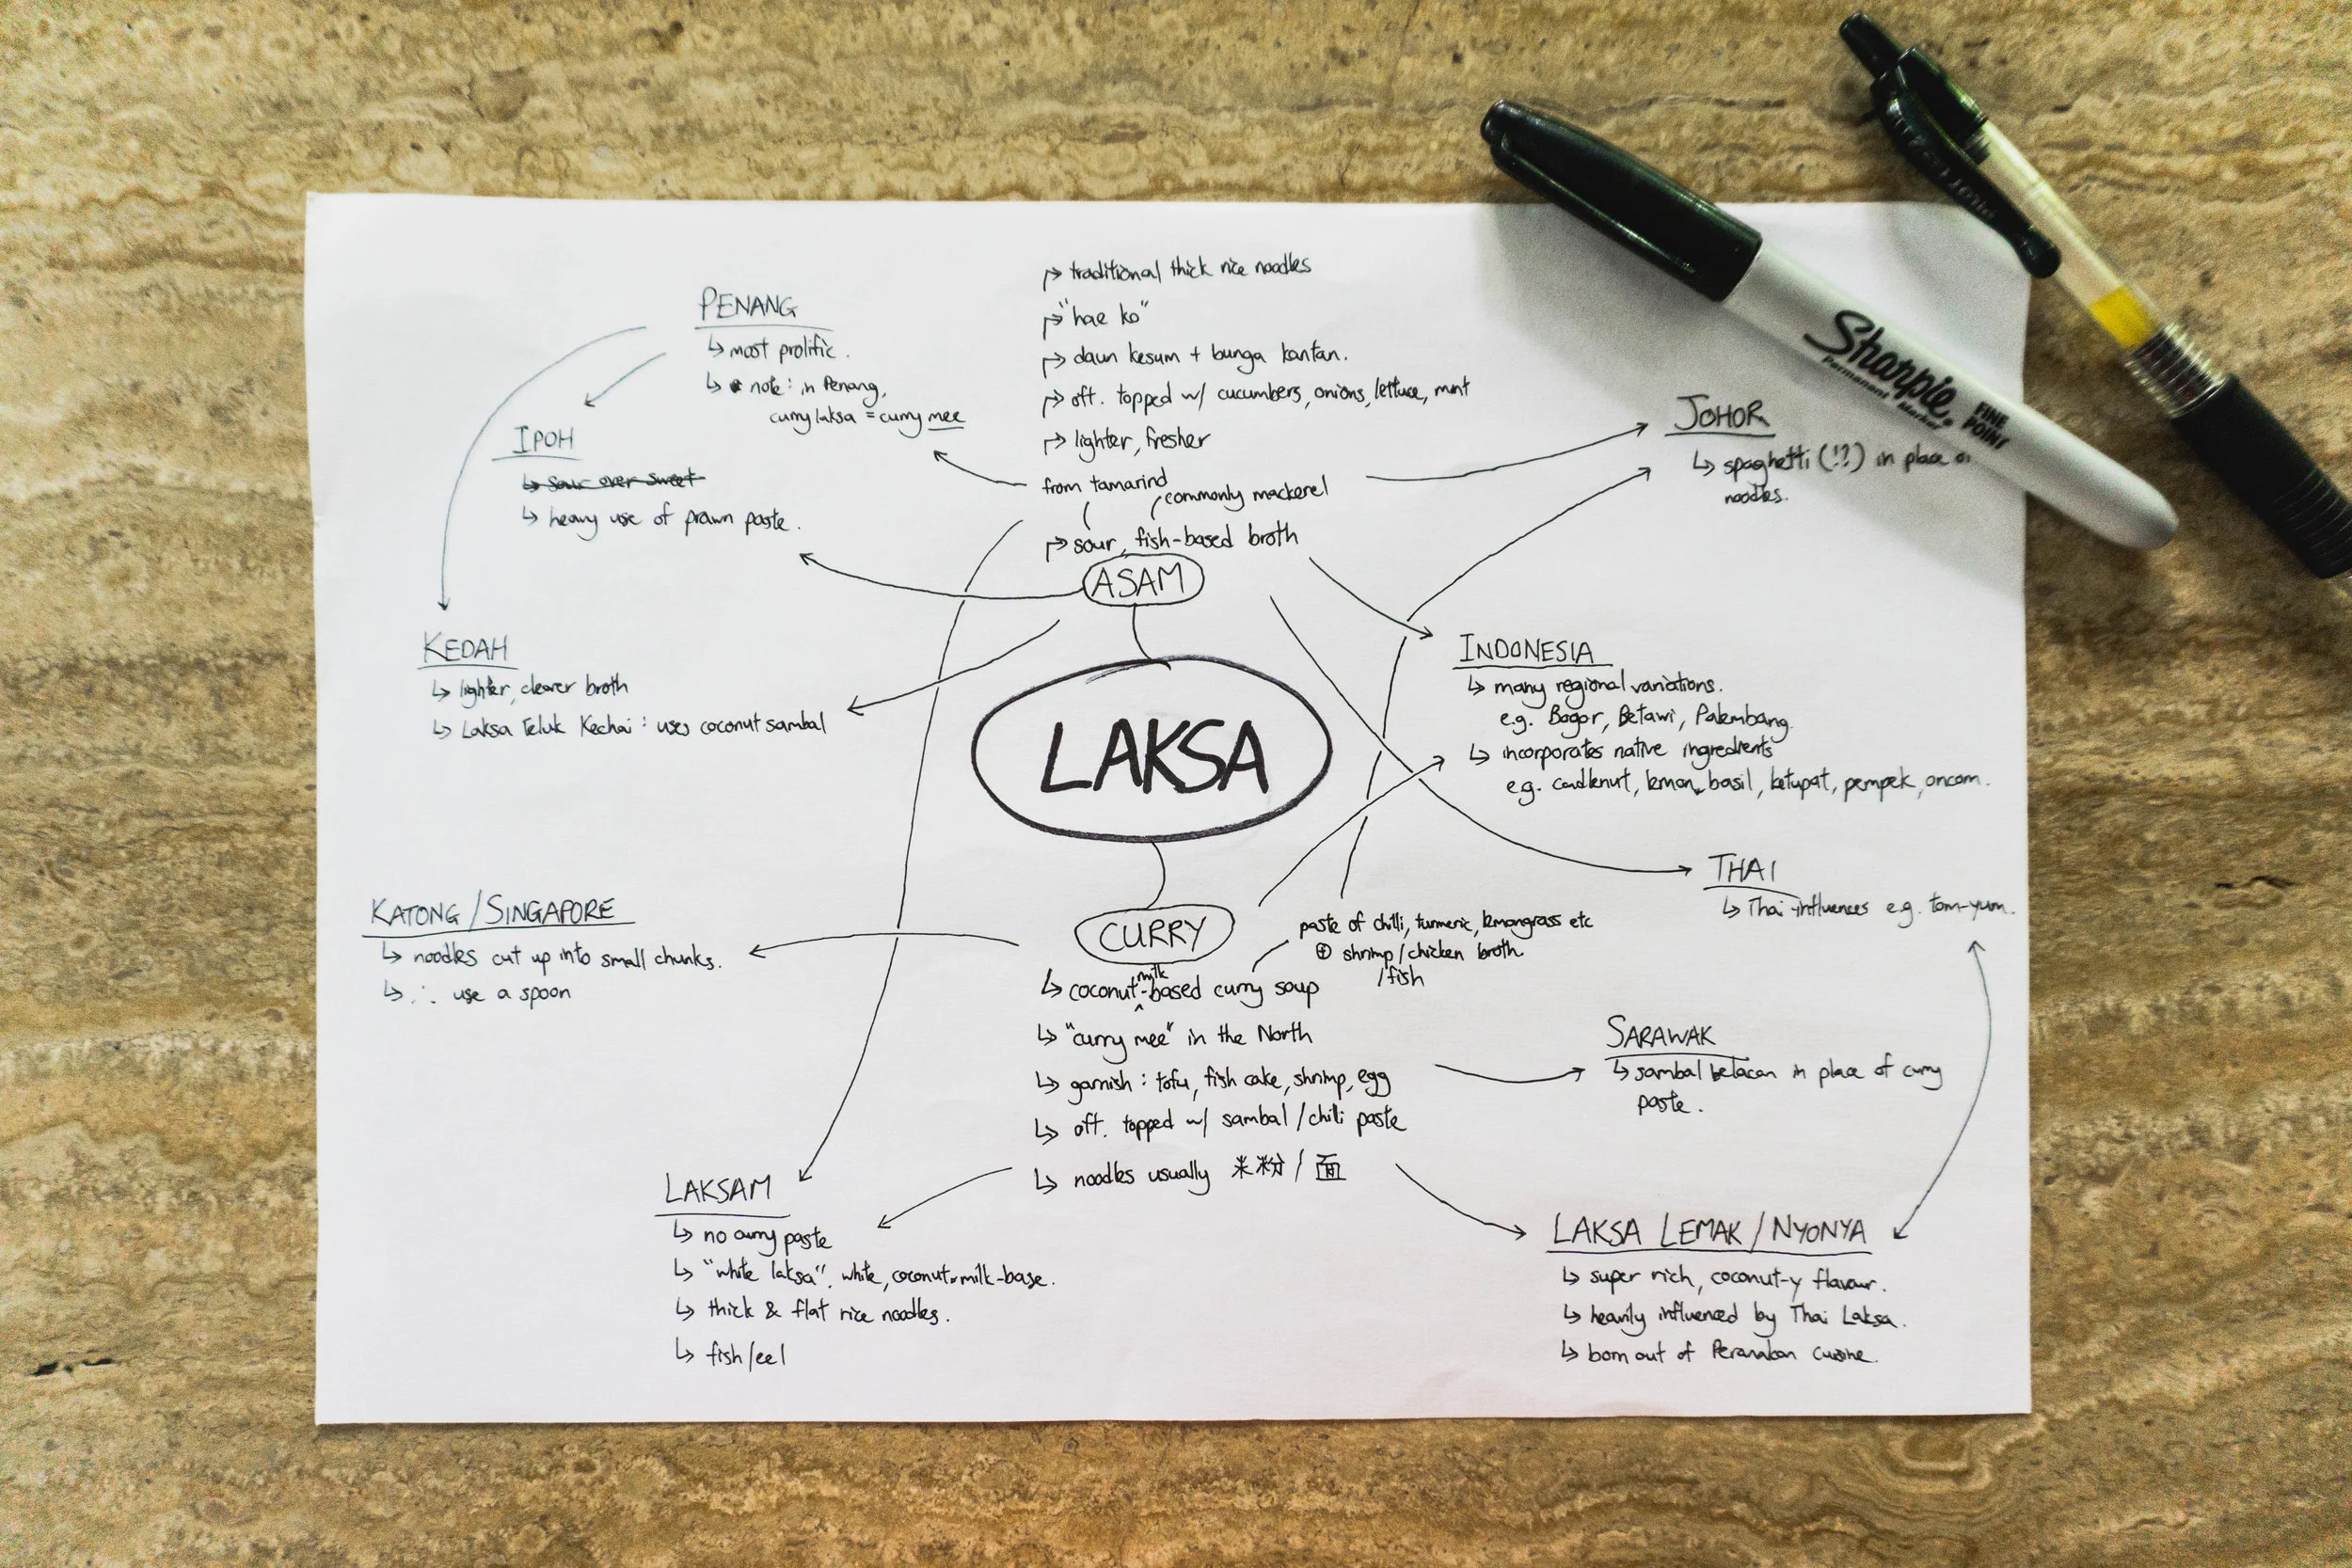 PENANG
↳ most prolific.
↳ note: in Penang,
curry laksa = curry mee
IPOH
↳ sour over sweet
↳ heavy use of prawn paste.
KEDAH
↳ lighter, clearer broth
↳ Laksa Teluk Kechai: uses coconut sambal
↱ traditional thick rice noodles
↱ "hae ko"
↱ daun kesum + bunga kantan.
↱ oft. topped w/ cucumbers, onions, lettuce, mint
↱ lighter, fresher
from tamarind
commonly mackerel
↱ sour, fish-based broth
ASAM
LAKSA
JOHOR
↳ spaghetti (!?) in place
noodles.
INDONESIA
↳ many regional variations.
e.g. Bogor, Betawi, Palembang.
↳ incorporates native ingredients
e.g. candlenut, lemon basil, ketupat, pempek, oncom.
THAI
↳ Thai influences e.g. tom-yum.
KATONG/SINGAPORE
↳ noodles cut up into small chunks.
↳ ∴ use a spoon
CURRY
paste of chilli, turmeric, lemongrass etc
⊕ shrimp/chicken broth
/fish
milk
↳ coconut-based curry soup
↳ "curry mee" in the North
↳ garnish: tofu, fish cake, shrimp, egg
↳ oft. topped w/ sambal/chilli paste
↳ noodles usually 米粉/面
SARAWAK
↳ sambal belacan in place of curry
paste.
LAKSAM
↳ no curry paste
↳ "white laksa". white, coconut-milk-base.
↳ thick & flat rice noodles.
↳ fish/eel
LAKSA LEMAK/NYONYA
↳ super rich, coconut-y flavour.
↳ heavily influenced by Thai Laksa.
↳ born out of Peranakan cuisine.
Sharpie
Permanent Marker
FINE
POINT
PILOT